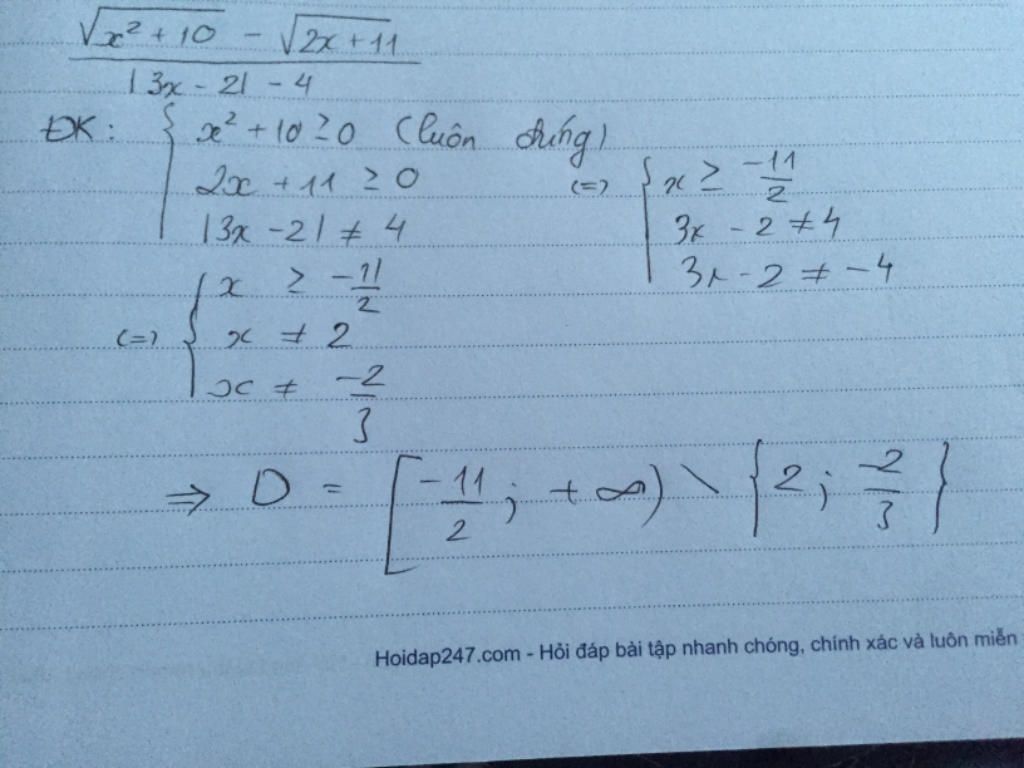 √(x² + 10) - √(2x + 11)
|3x - 2| - 4
ĐK: { x² + 10 ≥ 0 (luôn đúng)
2x + 11 ≥ 0
|3x - 2| ≠ 4
(=) { x ≥ -11/2
3x - 2 ≠ 4
3x - 2 ≠ -4
(=) { x ≥ -11/2
x ≠ 2
x ≠ -2/3
⇒ D = [-11/2 ; +∞) \ {2 ; -2/3}
Hoidap247.com - Hỏi đáp bài tập nhanh chóng, chính xác và luôn miễn